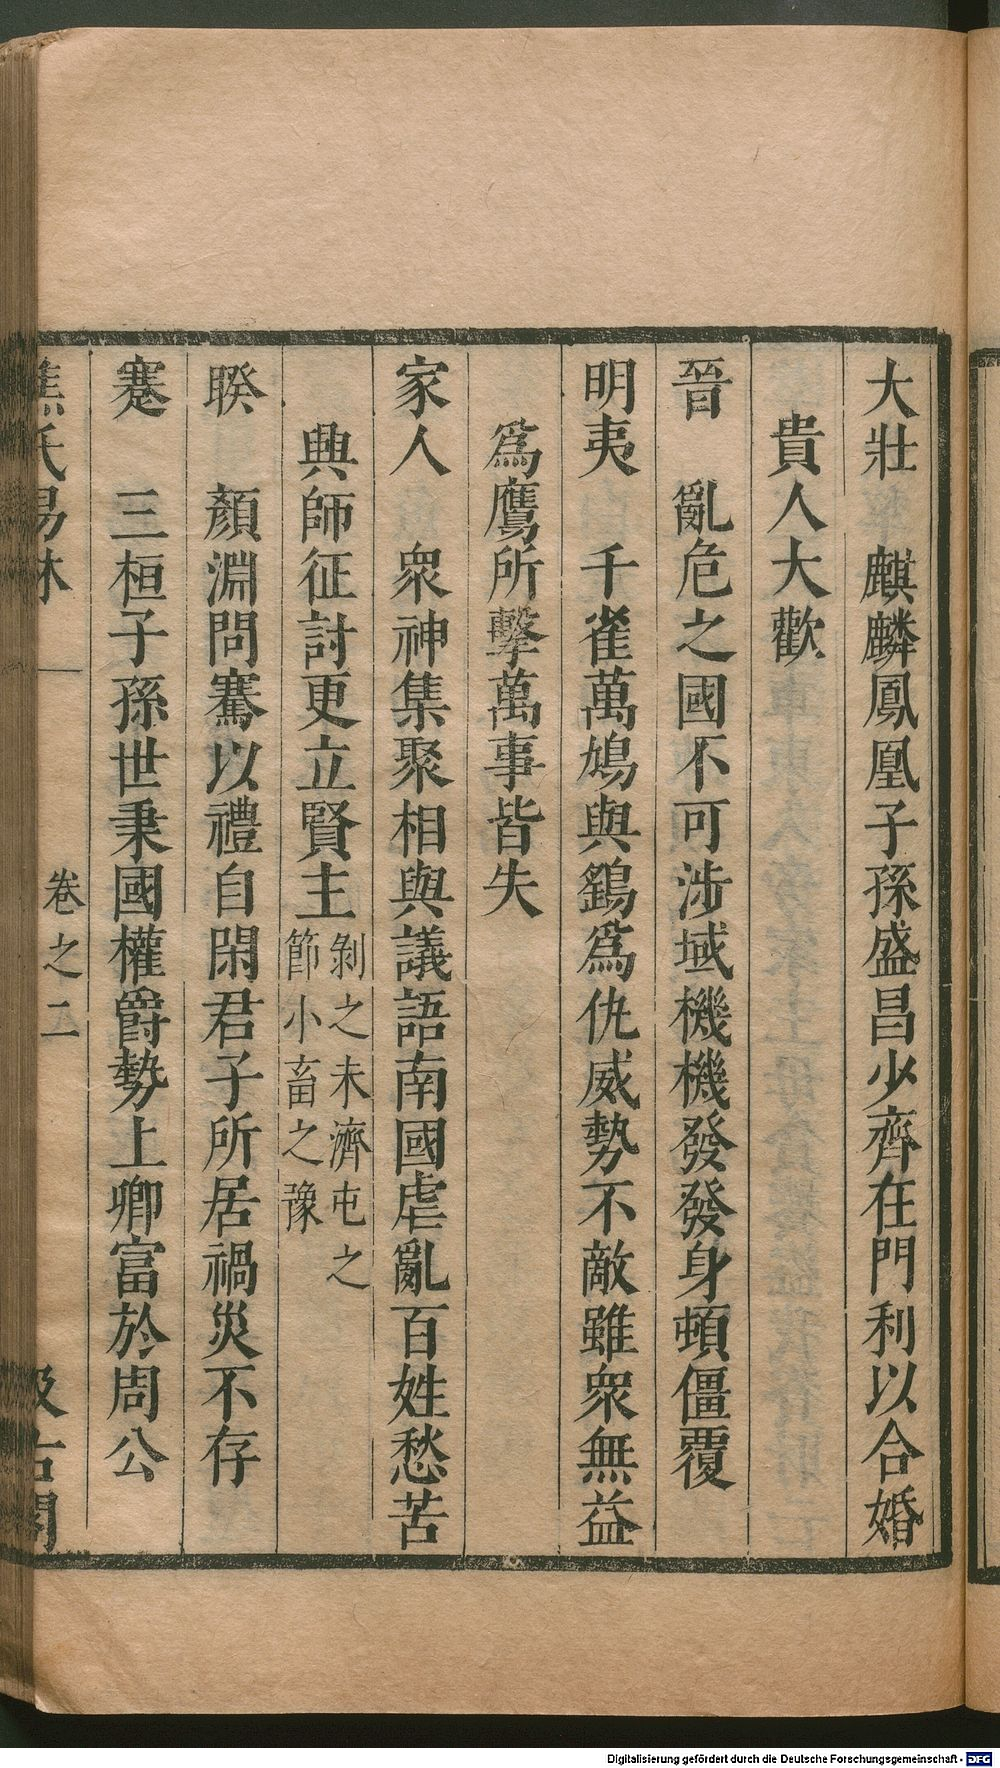 大壯　麒麟鳳凰子孫盛昌少齊在門利以合婚
貴人大歡
晉　亂危之國不可涉域機機發發身頓僵覆
明夷　千雀萬鳩與鷂爲仇威勢不敵雖衆無益
爲鷹所擊萬事皆失
家人　衆神集聚相與議語南國虐亂百姓愁苦
興師征討更立賢主
剝之未濟屯之
節小畜之豫
睽　顏淵問騫以禮自閑君子所居禍災不存
蹇　三桓子孫世秉國權爵勢上卿富於周公
焦氏易林
卷之二
汲古閣
Digitalisierung gefördert durch die Deutsche Forschungsgemeinschaft - DFG